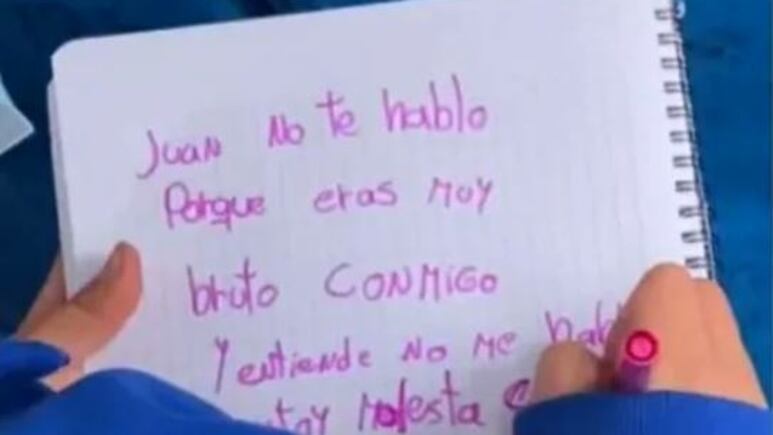 Juan No te hablo
Porque eras muy
bruto CONMIGO
Y entiende No me
molesta